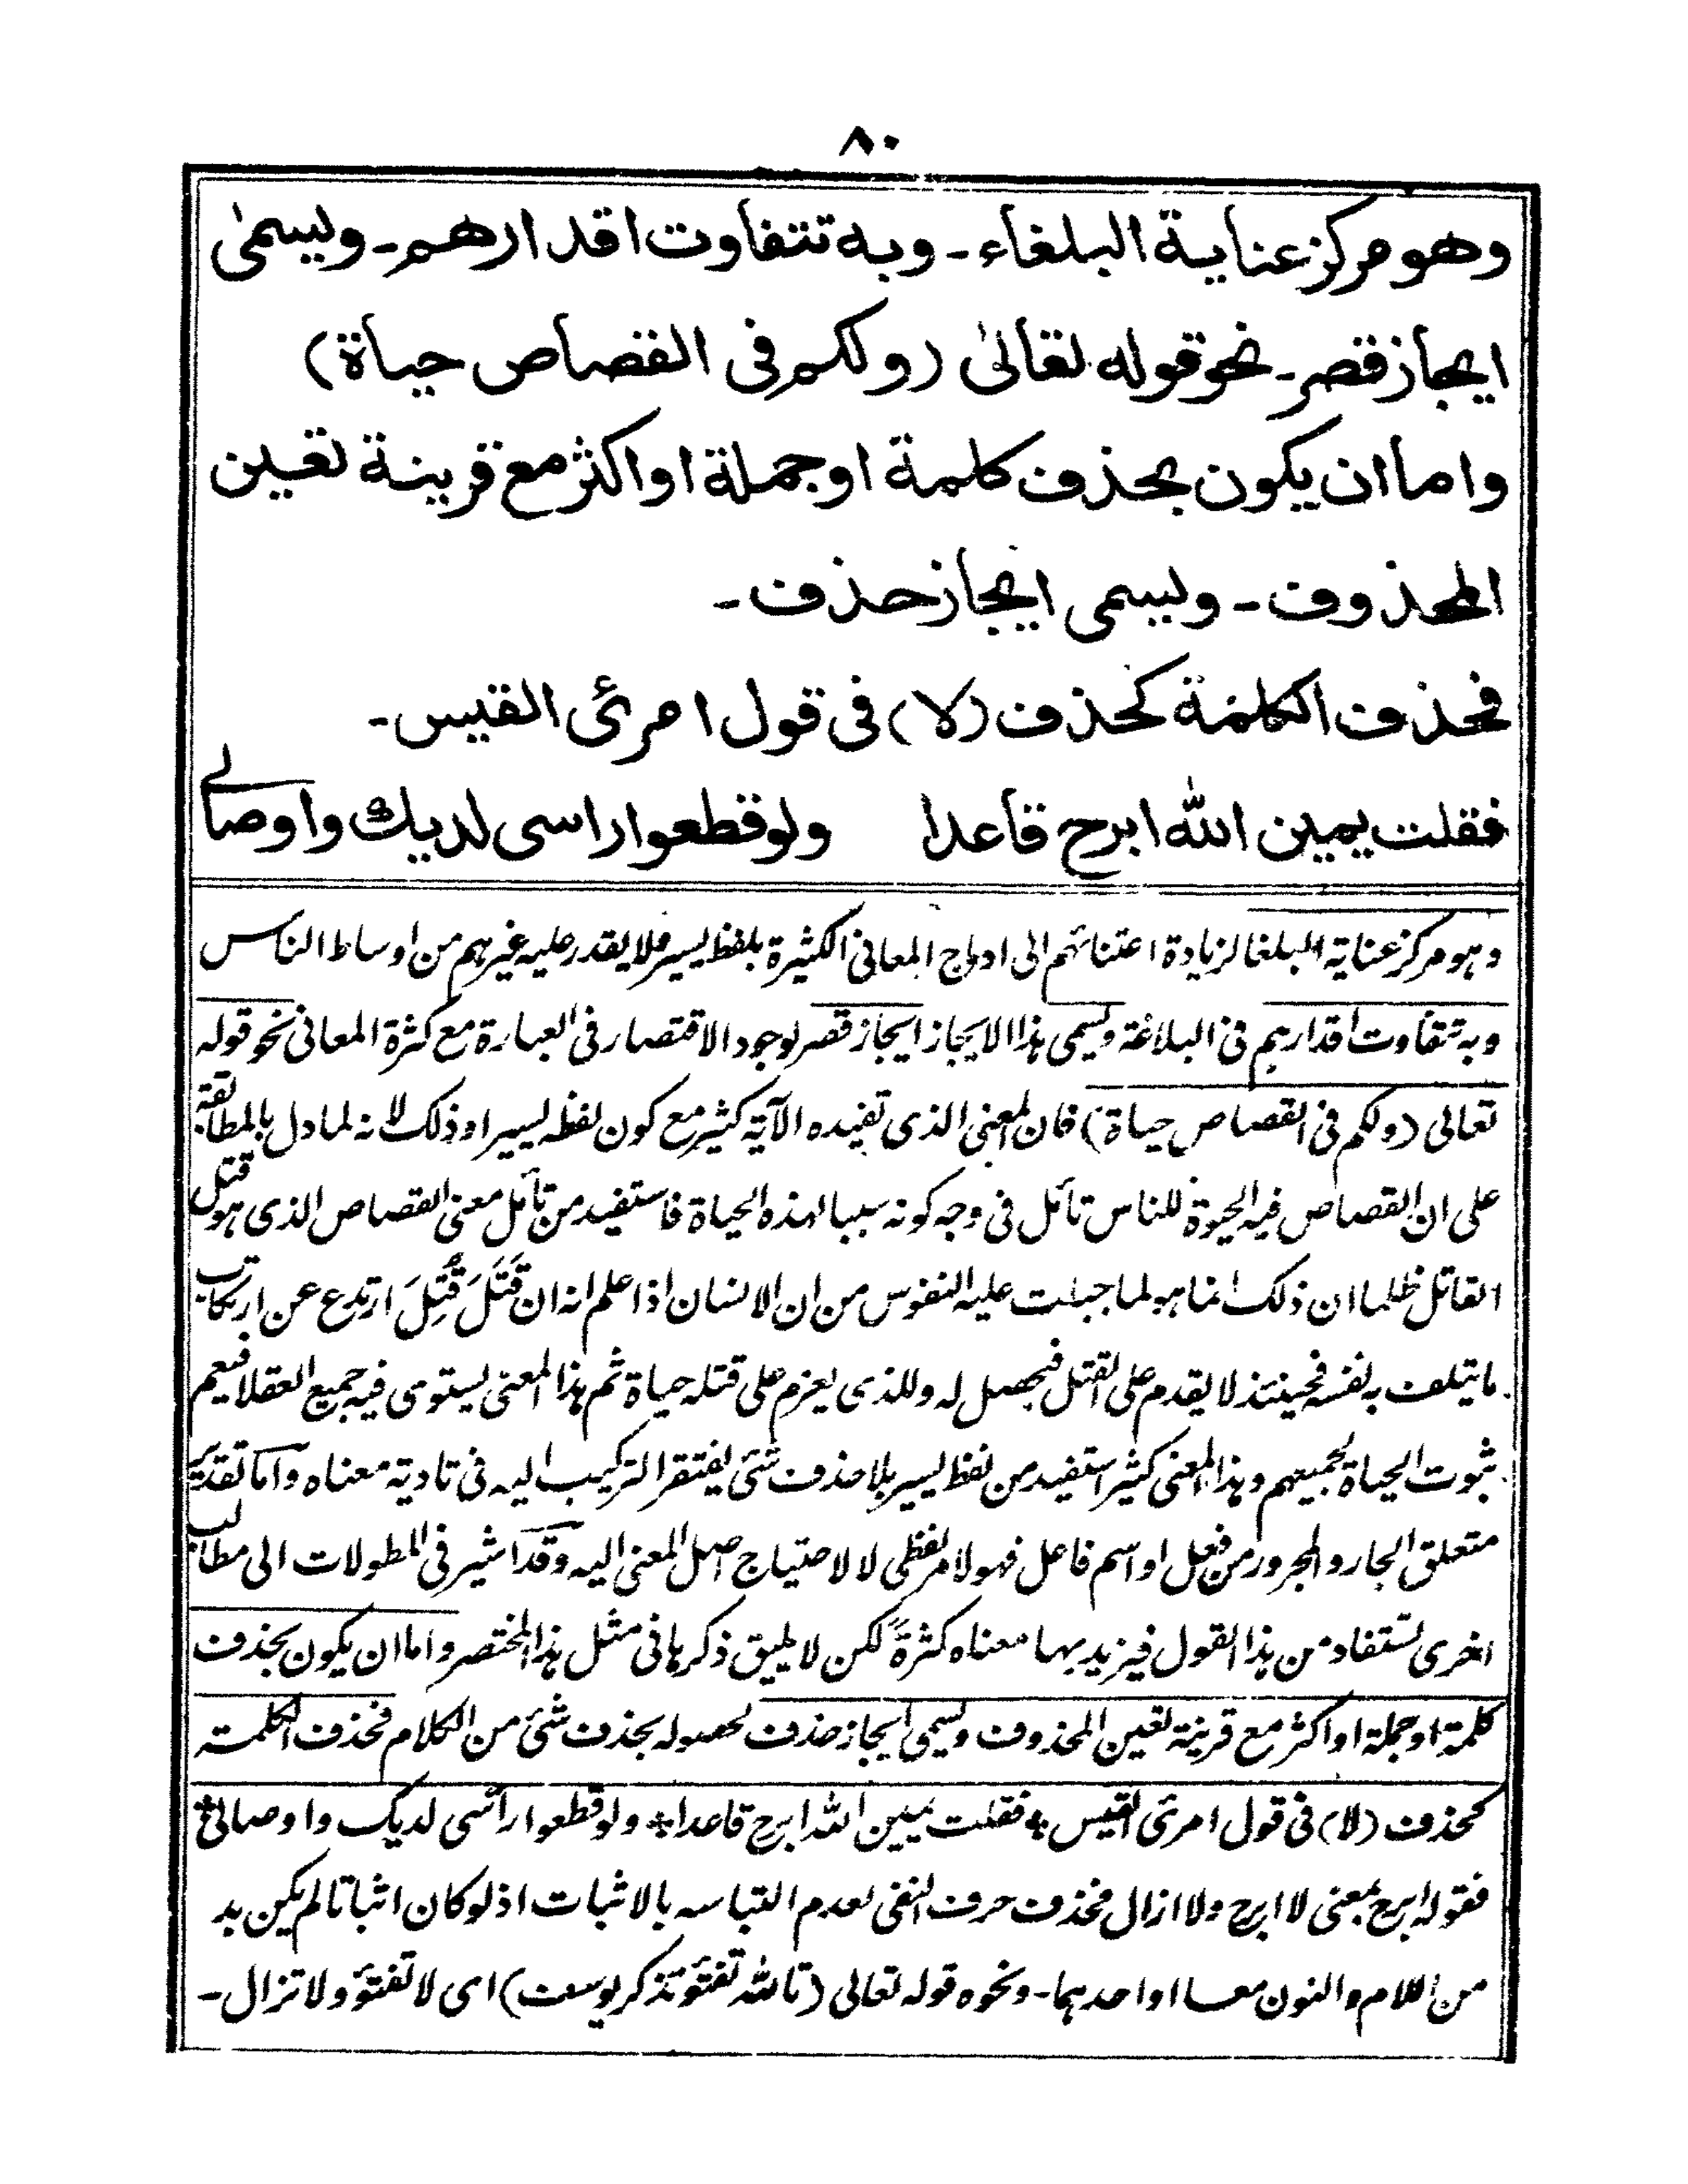 ٨٠
وهو مركز عناية البلغاء ـ وبه تتفاوت اقدارهم ـ ويسمىٰ
ايجاز قصر ـ نحو قوله تعالىٰ (ولكم فى القصاص حياة)
واما ان يكون بحذف كلمة او جملة او اكثر مع قرينة تعين
المحذوف ـ ويسمى ايجاز حذف ـ
فحذف الكلمة كحذف (لا) فى قول امرئ القيس ـ
فقلت يمين الله ابرح قاعدا ولو قطعوا راسى لديك واوصالى
وهو مركز عناية البلغا لزيادة اعتنائهم الى ادماج المعانى الكثيرة بلفظ يسير فلا يقدر عليه غيرهم من اوساط الناس
وبه تتفاوت اقدارهم فى البلاغة ويسمى هذا الايجاز ايجاز قصر لوجود الاقتصار فى العبارة مع كثرة المعانى نحو قوله
تعالى (ولكم فى القصاص حياة) فان المعنى الذى تفيده الآية كثير مع كون لفظه يسيرا وذلك لانه لما دل بالمطابقة
على ان القصاص فيه الحيوة للناس تأمل فى وجه كونه سببا لهذه الحياة فاستفيد من تأمل معنى القصاص الذى هو قتل
القاتل ظلما ان ذلك انما هو لما جبلت عليه النفوس من ان الانسان اذا علم انه ان قَتَلَ قُتِلَ ارتدع عن ارتكاب
ما يتلف به نفسه فحينئذ لا يقدم على القتل فيحصل له وللذى يعزم على قتله حياة ثم هذا المعنى يستوى فيه جميع العقلا فيعم
ثبوت الحياة لجميعهم وهذا المعنى كثير استفيد من لفظ يسير بلا حذف شئ يفتقر التركيب اليه فى تادية معناه واما تقدير
متعلق الجار والمجرور من فعل او اسم فاعل فهو لامر لفظى لا لاحتياج اصل المعنى اليه وقد اشير فى المطولات الى مطالب
اخرى تستفاد من هذا القول فيزيد بها معناه كثرةً لكن لا يليق ذكرها فى مثل هذا المختصر واما ان يكون بحذف
كلمة او جملة او اكثر مع قرينة تعين المحذوف ويسمى ايجاز حذف لحصوله بحذف شئ من الكلام فحذف الكلمة
كحذف (لا) فى قول امرئ القيس ؞ فقلت يمين الله ابرح قاعدا ؞ ولو قطعوا رأسى لديك واوصالى ؞
فقوله ابرح بمعنى لا ابرح ولا ازال فحذف حرف النفى لعدم التباسه بالاثبات اذ لو كان اثباتا لم يكن بد
من اللام والنون معا او احدهما ـ ونحوه قوله تعالى (تالله تفتؤ تذكر يوسف) اى لا تفتؤ ولا تزال ـ